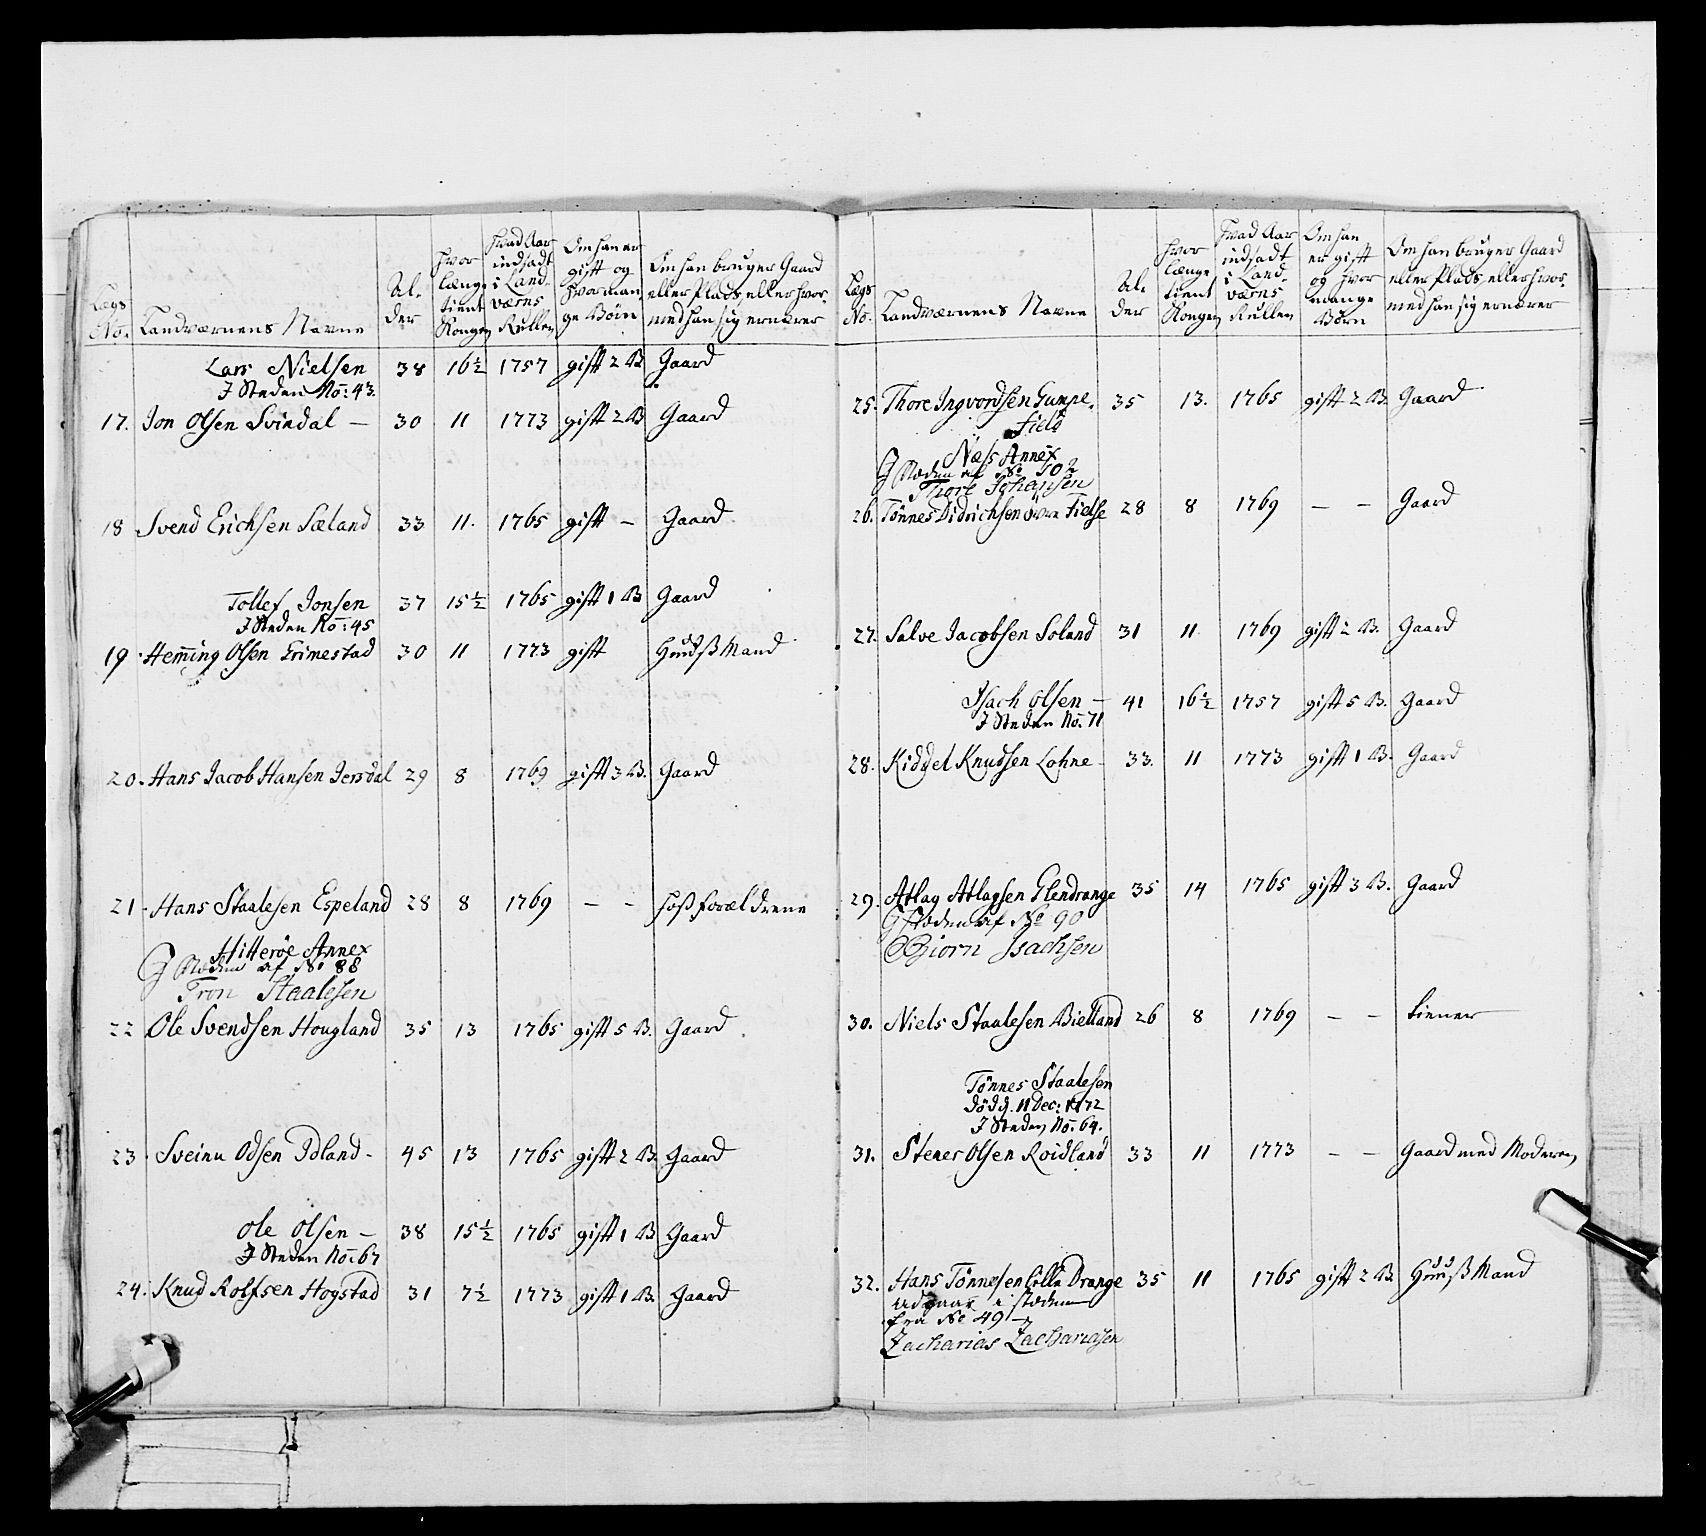 Lægs No.
Landværnens Navne
Al-
der
Hvor
længe
tient
Kongen
Hvad Aar
indsadt
i Land-
værns
Rullen
Om han er
gift og
hvorman-
ge Børn
Om han bruger Gaard
eller Plads, eller hvor-
med han sig ernærer
Lars Nielsen 38 16½ 1757 gift 2 B. Gaard
I Steden No: 43.
17. Jon Olsen Svindal — 30 11 1773 gift 2 B Gaard
18 Svend Erichsen Sæland 33 11. 1765 gift — Gaard
Tollef Jonsen 37 15½ 1765 gift 1 B Gaard
I Steden No: 45
19 Hem̄ing Olsen Grimestad 30 11 1773 gift Huuß Mand
20. Hans Jacob Hansen Jersdal 29 8 1769 gift 3 B. Gaard
21. Hans Staalesen Espeland 28 8 1769 — — hoß forældrene
Hitterøe Annex
I Stæden af No 88
Tron Staalesen
22 Ole Svendsen Hougland 35 13 1765 gift 5 B. Gaard
23 Sveinu Odsen Idland - 45 13 1765 gift 2 B Gaard
Ole Olsen — 38 15½ 1765 gift 1 B Gaard
I Steden No: 67
24. Knud Rolfsen Hogstad 31 7½ 1773 gift 1 B. Gaard
Lægs
No.
Landværnens Navne
Al-
der
Hvor
længe
tient
Kongen
Hvad Aar
indsadt
i Land-
værns
Rullen
Om han
er gift
og hvor
mange
Børn
Om han bruger Gaard
eller Plads, eller hvor-
med han sig ernærer
25. Thore Ingvordsen Gumpe- 35 13. 1765 gift 2 B. Gaard
field
Næs Annex
I Stæden af No 102
Thore Johansen
26. Tönnes Didrichsen øvre Fielse 28 8 1769 — — Gaard
27. Salve Jacobsen Soland 31 11 1769 gift 2 B. Gaard
Isach Olsen — 41 16½ 1757 gift 5 B. Gaard
I Steden No. 71
28. Kiddel Knudsen Lohne 33. 11 1773 gift 1 B. Gaard
29. Atlag Atlagsen Glendrange 35 14 1765 gift 3 B. Gaard
I Stæden af No 90
Biorn Isachsen
30. Niels Staalesen Bielland 26 8 1769 — — tiener
Tönnes Staalesen
død d. 11 Dec: 1772
I Steden No. 64.
31. Stener Olsen Roidland 33 11 1773 — — Gaard med Moderen
32. Hans Tönnesen Lille Drange 35 11 1765 gift 2 B. Huuß Mand
udgaar i stæden
fra No 49
Zacharias Zachariasen